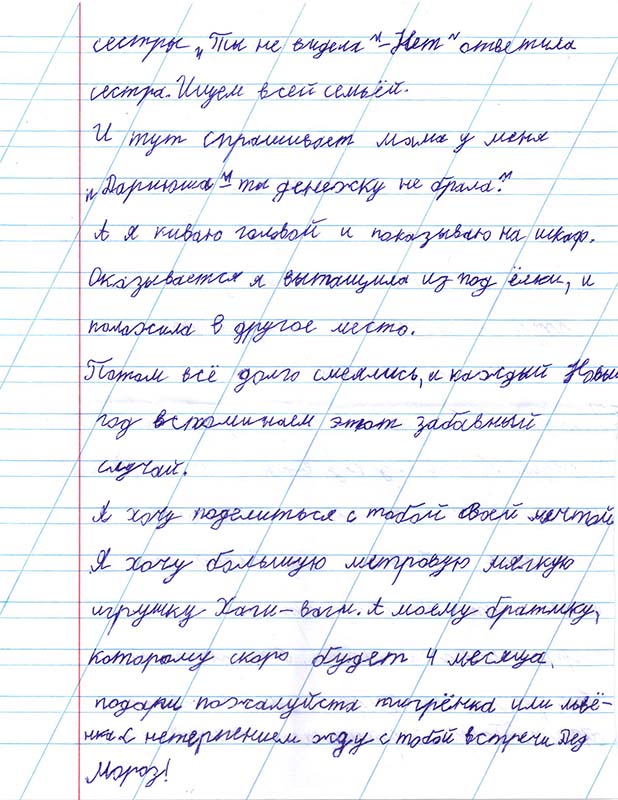 сестры „Ты не видела"-Нет" ответила
сестра. Ищем всей семьёй.
И тут спрашивает мама у меня
„Дарнюша"- ты денежку не брала?"
А я киваю головой и показываю на шкаф.
Оказывается я вытащила из под ёлки, и
положила в другое место.
Потом всё долго смеялись, и каждый Новый
год вспоминаем этот забавный
случай.
Я хочу поделиться с тобой своей мечтой
Я хочу большую метровую мягкую
игрушку Хаги-ваги. А моему братику,
которому скоро будет 4 месяца,
подари пожалуйста тигрёнка или львё-
нка С нетерпением жду с тобой встречи Дед
Мороз!